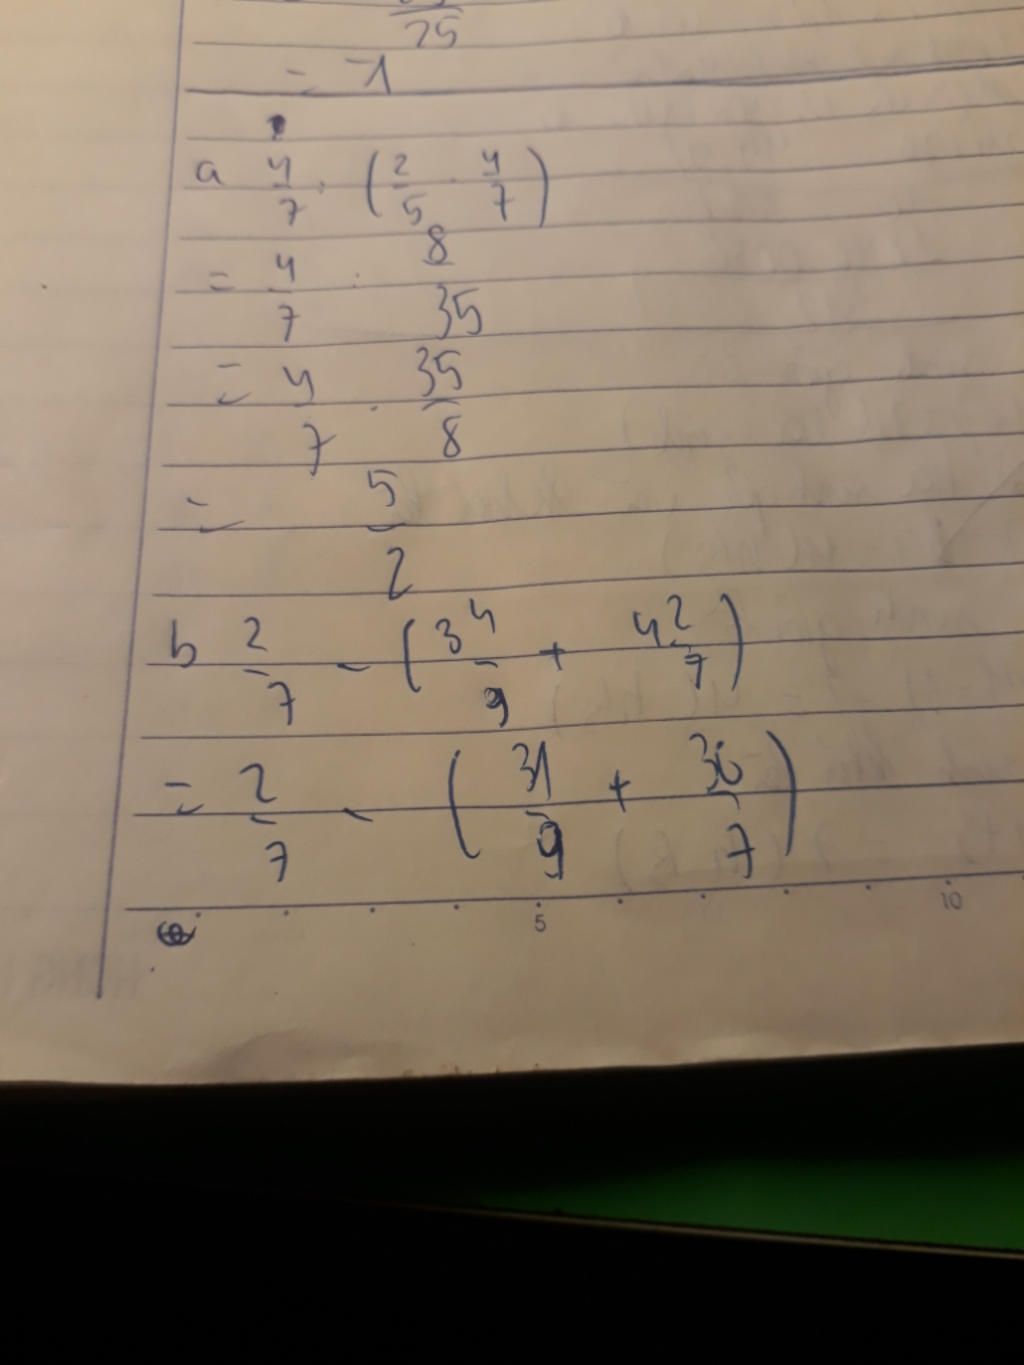 25
= -1
a 4/7 : (2/5 . 4/7)
= 4/7 : 8/35
= 4/7 . 35/8
= 5/2
b 2/7 - (3 4/9 + 4 2/7)
= 2/7 - (31/9 + 30/7)
5 10